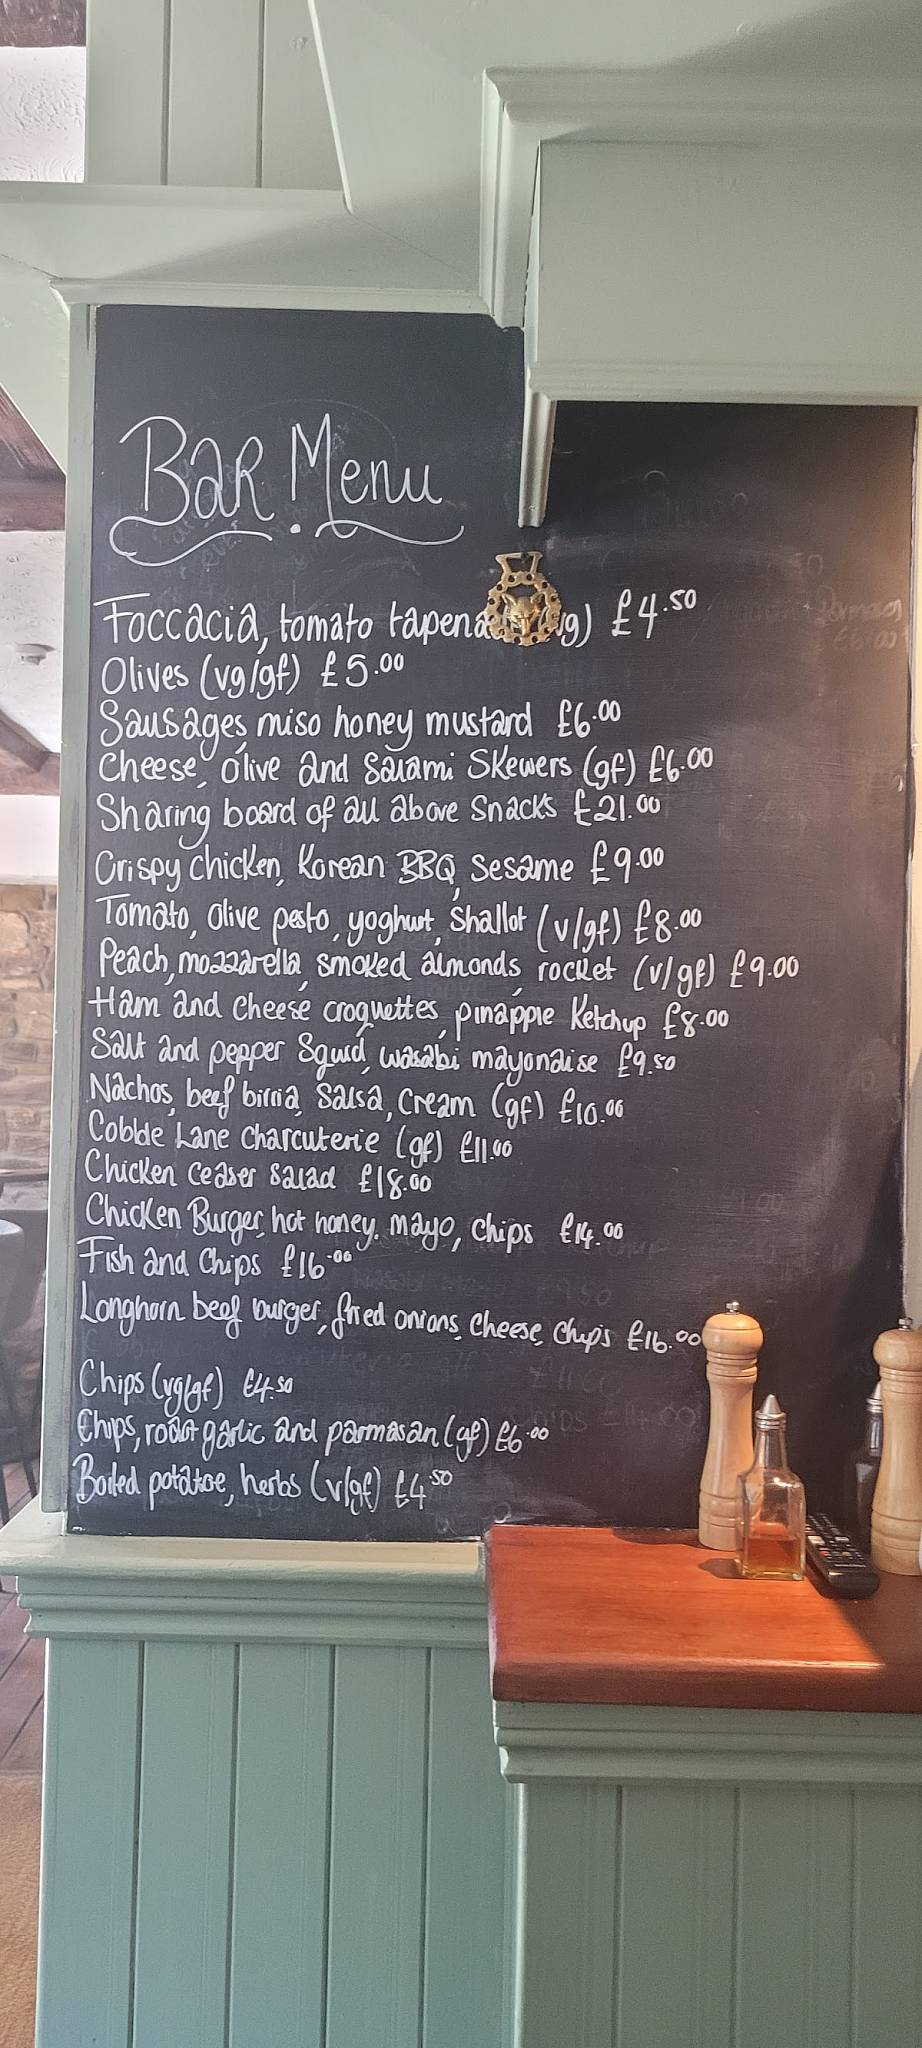 Bar Menu
Foccacia, tomato tapena g) £4.50
Olives (vg/gf) £5.00
Sausages, miso honey mustard £6.00
Cheese, olive and salami skewers (gf) £6.00
Sharing board of all above snacks £21.00
Crispy chicken, Korean BBQ, sesame £9.00
Tomato, olive pesto, yoghurt, shallot (v/gf) £8.00
Peach, mozzarella, smoked almonds, rocket (v/gf) £9.00
Ham and cheese croquettes, pinapple ketchup £8.00
Salt and pepper squid, wasabi mayonaise £9.50
Nachos, beef birria, salsa, cream (gf) £10.00
Cobble Lane charcuterie (gf) £11.00
Chicken ceaser salad £18.00
Chicken Burger, hot honey. mayo, chips £14.00
Fish and Chips £16.00
Longhorn beef burger, fried onions, cheese, chips £16.00
Chips (vg/gf) £4.50
Chips, roast garlic and parmasan (gf) £6.00
Boiled potatoe, herbs (v/gf) £4.50